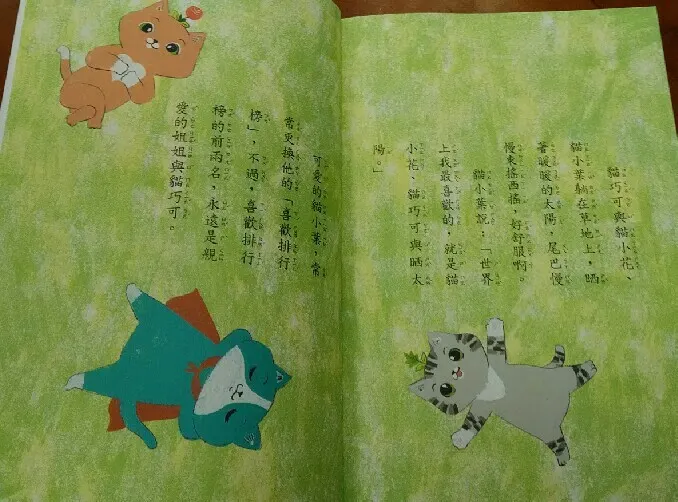 貓巧可與貓小花、
貓小葉躺在草地上，晒
著暖暖的太陽，尾巴慢
慢東搖西搖，好舒服啊。
貓小葉說：「世界
上我最喜歡的，就是貓
小花、貓巧可與晒太
陽。」
可愛的貓小葉，常
常更換他的「喜歡排行
榜」，不過，喜歡排行
榜的前兩名，永遠是親
愛的姐姐與貓巧可。